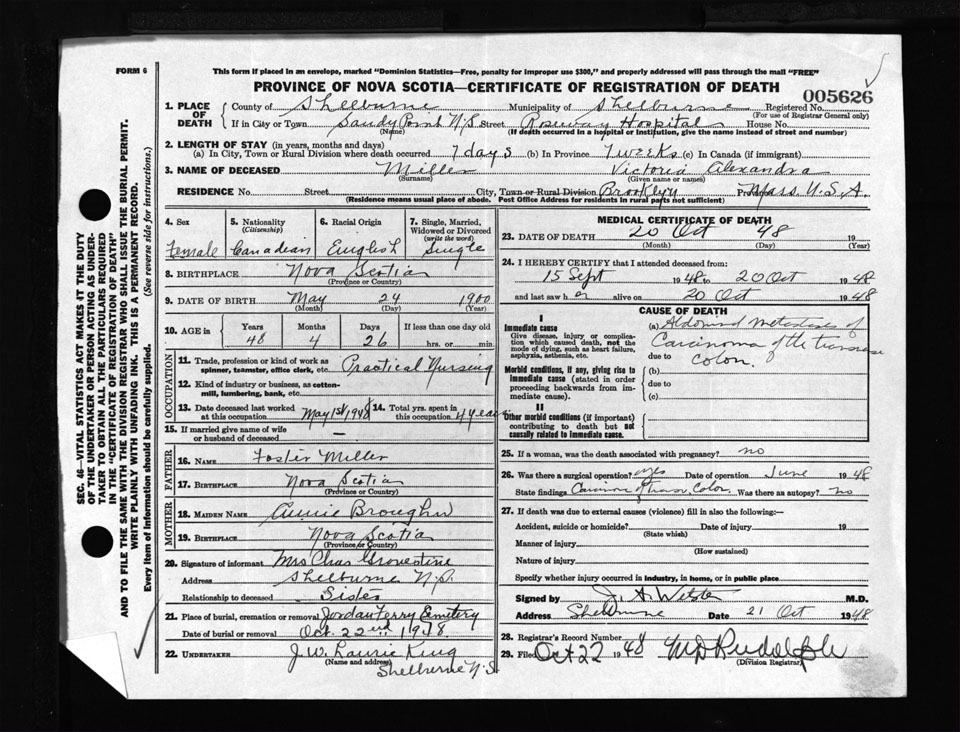 FORM 6
This form if placed in an envelope, marked "Dominion Statistics—Free, penalty for improper use $300," and properly addressed will pass through the mail "FREE"
PROVINCE OF NOVA SCOTIA—CERTIFICATE OF REGISTRATION OF DEATH
005626
1. PLACE OF DEATH
County of Shelburne Municipality of Shelburne Registered No.
(For use of Registrar General only)
If in City or Town Sandy Point N.S Street Roseway Hospital House No.
(Name) (If death occurred in a hospital or institution, give the name instead of street and number)
2. LENGTH OF STAY (in years, months and days)
(a) In City, Town or Rural Division where death occurred 7 days (b) In Province 7 weeks (c) In Canada (if immigrant)
3. NAME OF DECEASED Miller Victoria Alexandra
(Surname) (Given name or names)
RESIDENCE No. Street City, Town or Rural Division Brooklyn Province Mass. U.S.A.
(Residence means usual place of abode. Post Office Address for residents in rural parts not sufficient)
4. Sex Female
5. Nationality (Citizenship) Canadian
6. Racial Origin English
7. Single, Married, Widowed or Divorced (write the word) Single
8. BIRTHPLACE Nova Scotia
(Province or Country)
9. DATE OF BIRTH May 24 1900
(Month) (Day) (Year)
10. AGE in Years Months Days If less than one day old
48 4 26 hrs. or min.
OCCUPATION
11. Trade, profession or kind of work as spinner, teamster, office clerk, etc. Practical Nursing
12. Kind of industry or business, as cotton-mill, lumbering, bank, etc.
13. Date deceased last worked at this occupation May 1st 1948
14. Total yrs. spent in this occupation 4 years
15. If married give name of wife or husband of deceased —
FATHER
16. NAME Foster Miller
17. BIRTHPLACE Nova Scotia
(Province or Country)
MOTHER
18. MAIDEN NAME Annie
19. BIRTHPLACE Nova Scotia
(Province or Country)
20. Signature of informant Mrs Chas
Address Shelburne N.S.
Relationship to deceased Sister
21. Place of burial, cremation or removal Jordan Ferry Cemetery
Date of burial or removal Oct. 22nd 1948
22. UNDERTAKER J. W. Laurie King
(Name and address)
Shelburne N.S
MEDICAL CERTIFICATE OF DEATH
23. DATE OF DEATH 20 Oct 48 19
(Month) (Day) (Year)
24. I HEREBY CERTIFY that I attended deceased from:
15 Sept 1948 to 20 Oct 1948
and last saw her alive on 20 Oct 1948
CAUSE OF DEATH
I
Immediate cause
Give disease, injury or complication which caused death, not the mode of dying, such as heart failure, asphyxia, asthenia, etc.
(a) Metastases of
Carcinoma of the transverse
due to colon.
Morbid conditions, if any, giving rise to immediate cause (stated in order proceeding backwards from immediate cause).
(b)
due to
(c)
II
Other morbid conditions (if important) contributing to death but not causally related to immediate cause.
25. If a woman, was the death associated with pregnancy? no
26. Was there a surgical operation? yes Date of operation June 1948
State findings Carcinoma of trans. Colon Was there an autopsy? no
27. If death was due to external causes (violence) fill in also the following:—
Accident, suicide or homicide? Date of injury 19
(State which)
Manner of injury
(How sustained)
Nature of injury
Specify whether injury occurred in industry, in home, or in public place
Signed by M.D.
Address Shelburne Date 21 Oct 1948
28. Registrar's Record Number
29. Filed Oct 22 1948 M D Rudolph
(Division Registrar)
SEC. 46—VITAL STATISTICS ACT MAKES IT THE DUTY
OF THE UNDERTAKER OR PERSON ACTING AS UNDER-
TAKER TO OBTAIN ALL THE PARTICULARS REQUIRED
IN THE "CERTIFICATE OF REGISTRATION OF DEATH"
AND TO FILE THE SAME WITH THE DIVISION REGISTRAR WHO SHALL ISSUE THE BURIAL PERMIT.
WRITE PLAINLY WITH UNFADING INK. THIS IS A PERMANENT RECORD.
Every item of information should be carefully supplied. (See reverse side for instructions.)